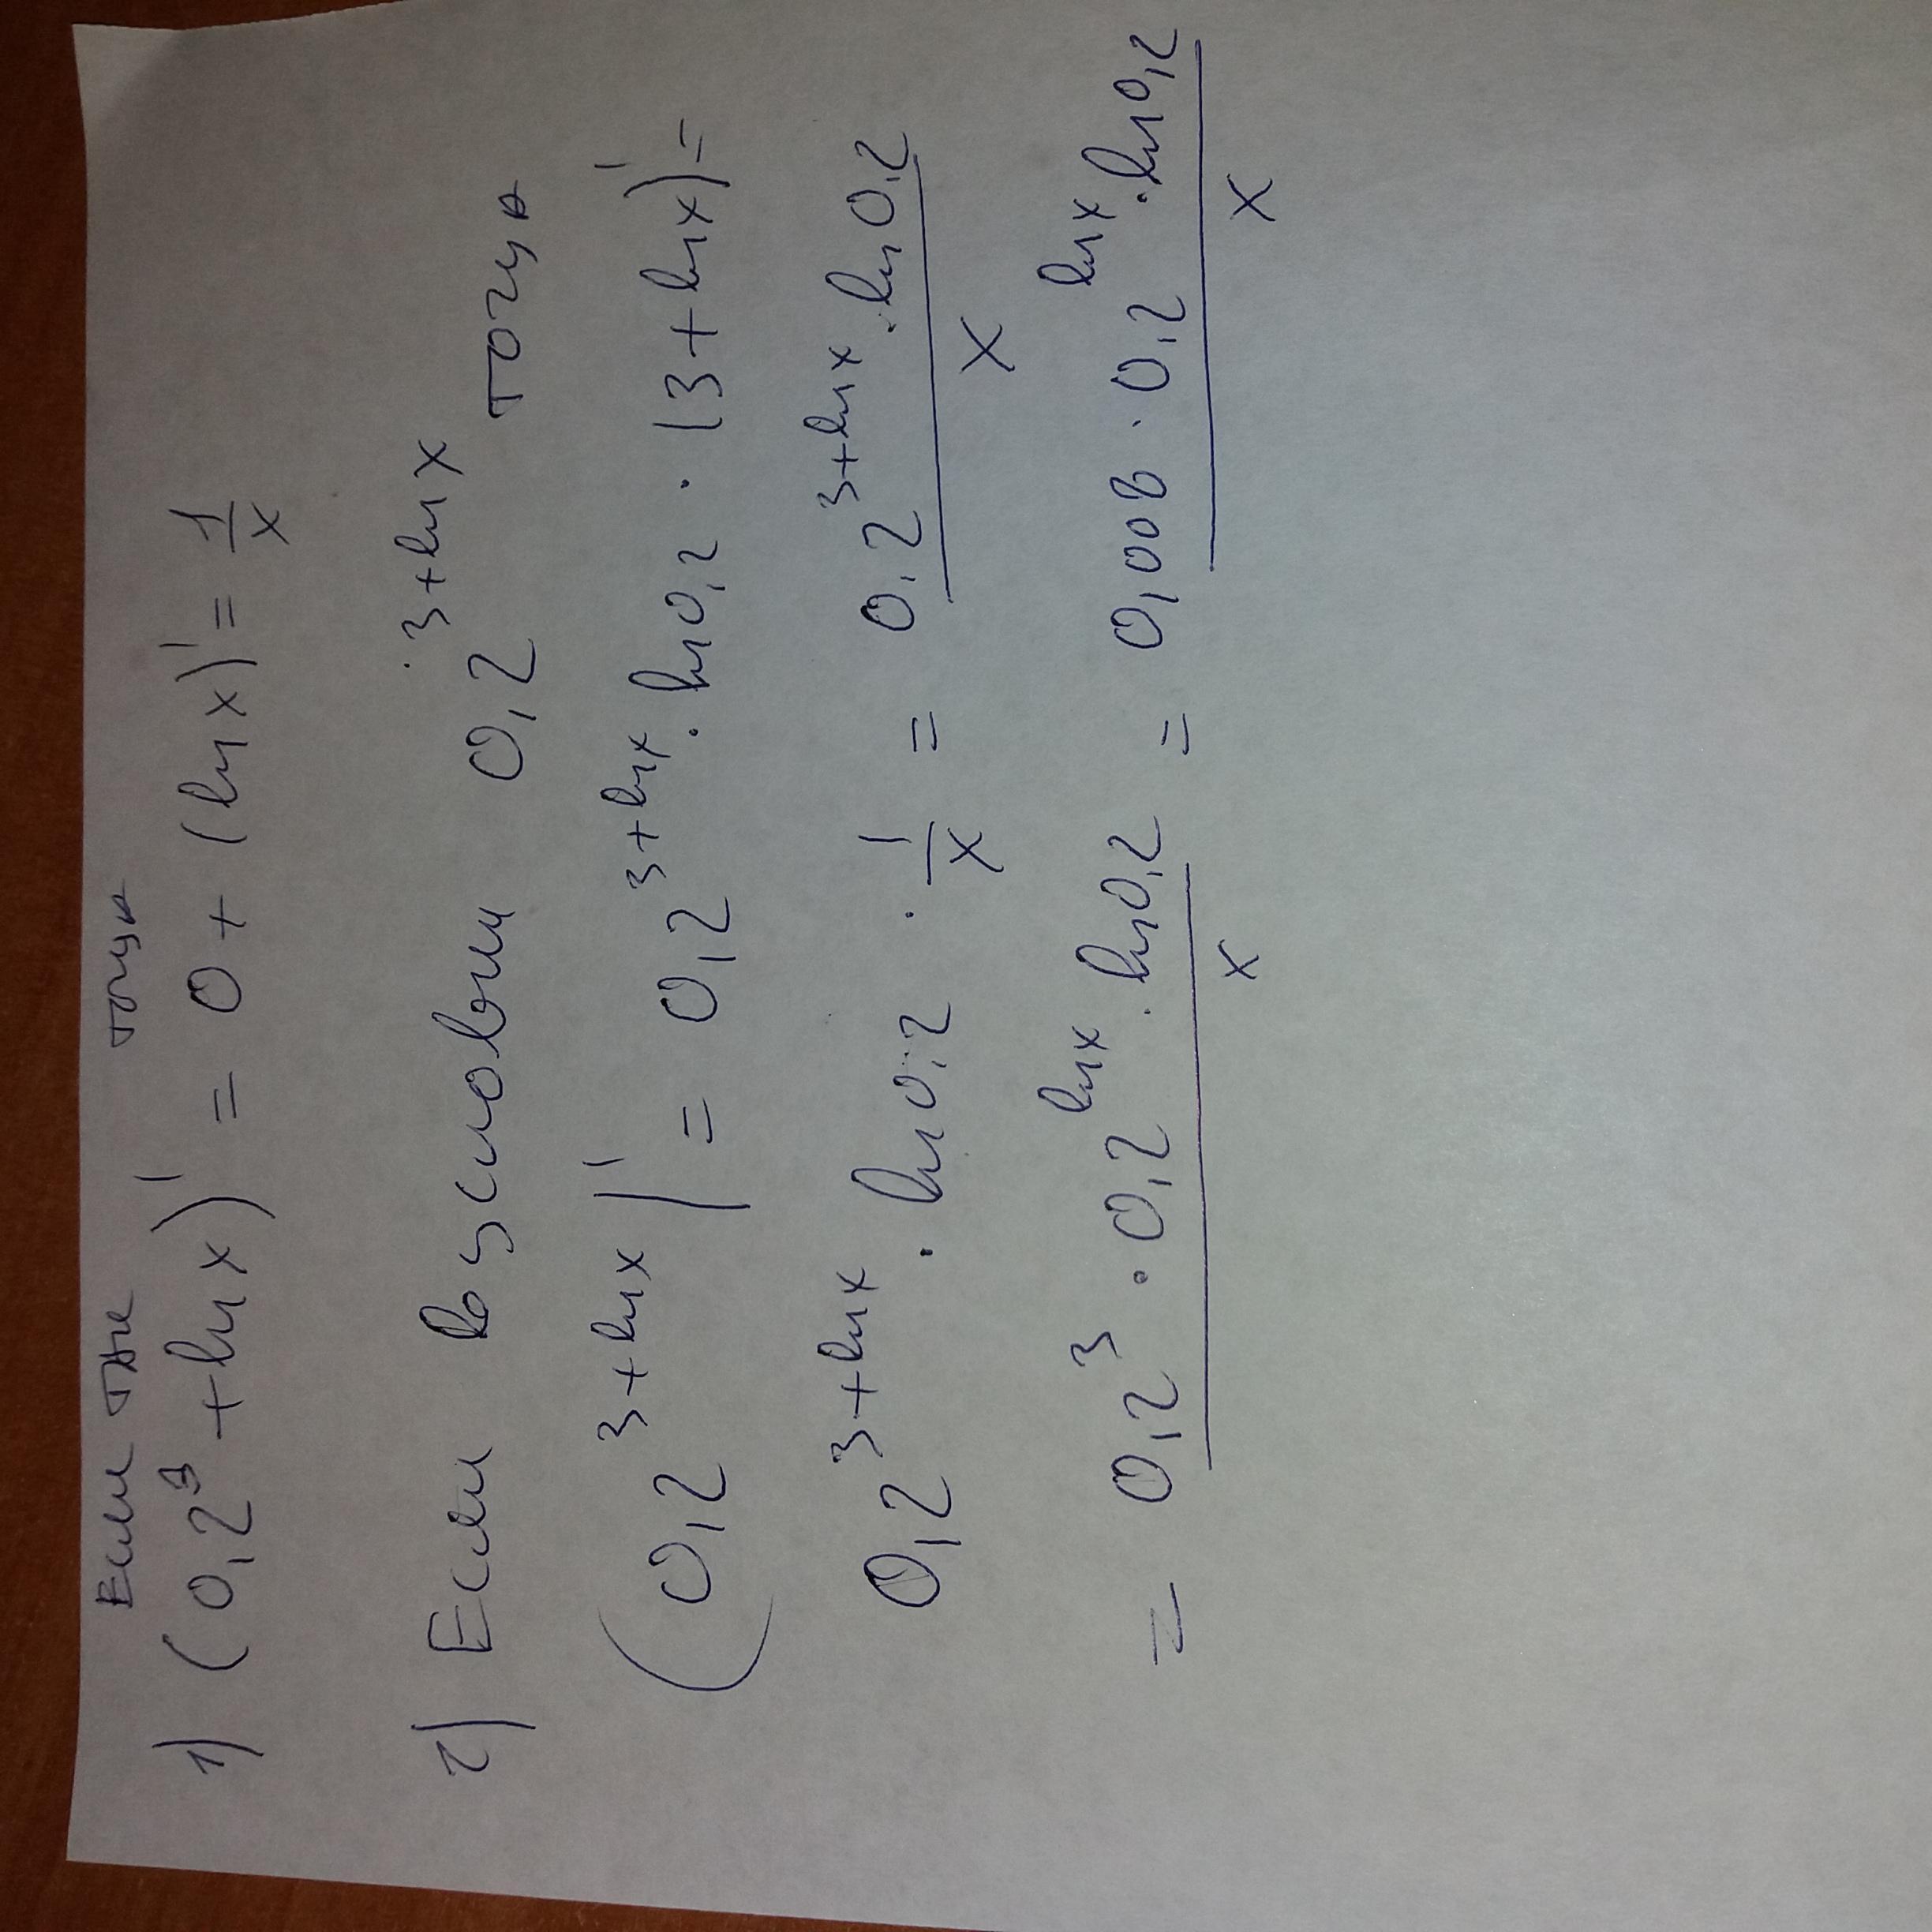 Если так тогда
1) (0,2³ + ln x)' = 0 + (ln x)' = 1/x
2) Если в условии 0,2^(3+ln x) тогда
(0,2^(3+ln x))' = 0,2^(3+ln x) · ln 0,2 · (3 + ln x)' =
0,2^(3+ln x) · ln 0,2 · 1/x = (0,2^(3+ln x) · ln 0,2)/x
= (0,2³ · 0,2^(ln x) · ln 0,2)/x = (0,008 · 0,2^(ln x) · ln 0,2)/x